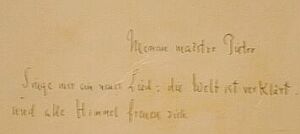 Meinem maistro Pietro
Singe mir ein neues Lied: die Welt ist verklärt
und alle Himmel freuen sich